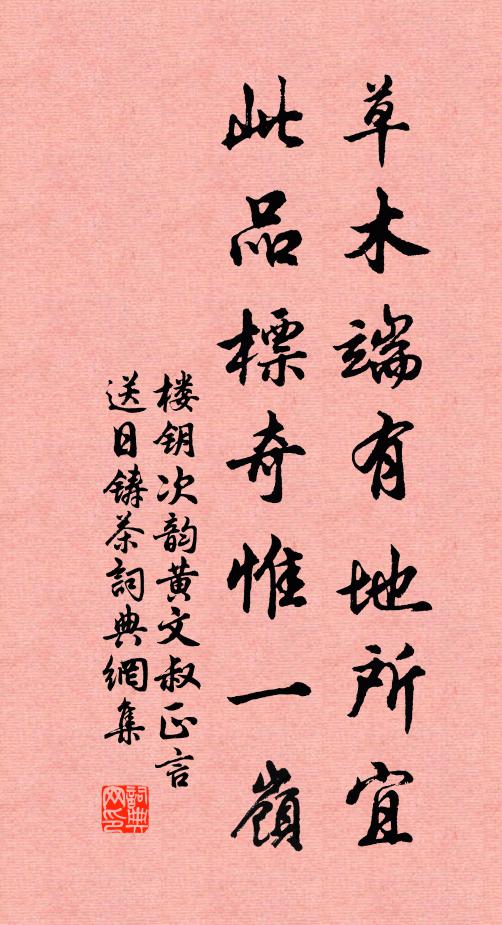 草木端有地所宜
此品標奇惟一嶺
楼钥次韵黄文叔正言
送日鑄茶詞典網集
詞典網印